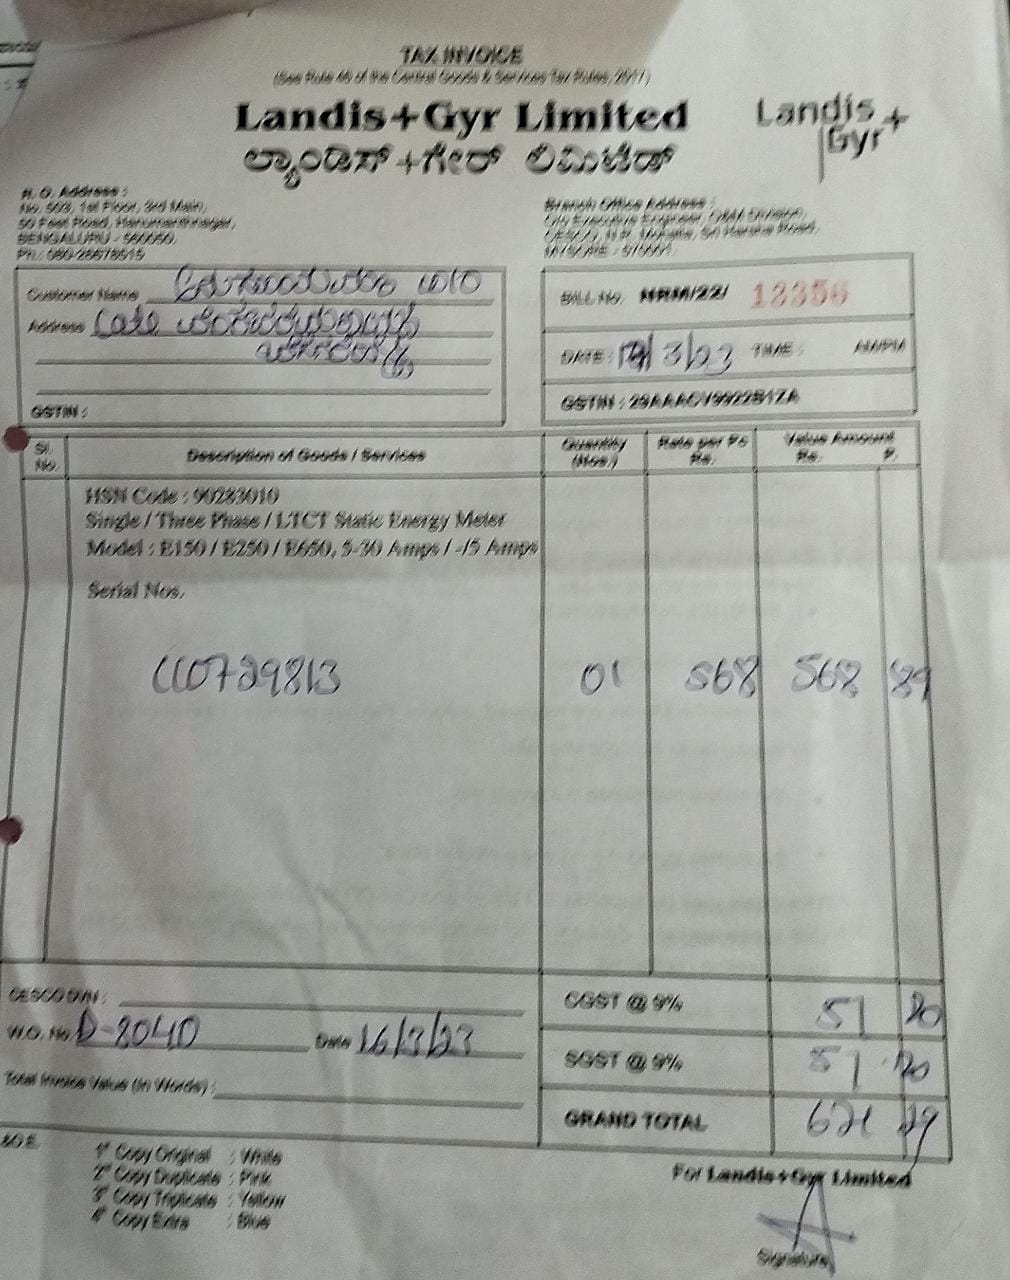 TAX INVOICE
(See Rule 46 of the Central Goods & Services Tax Rules, 2017)
Landis+Gyr Limited
ಲ್ಯಾಂಡಿಸ್+ಗೇರ್ ಲಿಮಿಟೆಡ್
Landis+
Gyr
R. O. Address :
No. 503, 1st Floor, 3rd Main,
50 Feet Road, Hanumanthnagar,
BENGALURU - 560050.
Ph.: 080-26678515
Branch Office Address :
C/o Executive Engineer, O&M Division,
CESCO, N.R. Mohalla, Sri Harsha Road,
MYSORE - 570001.
Customer Name
Address
GSTIN :
BILL No. NRM/22/ 13356
DATE : 3/23 TIME : AM/PM
GSTIN : 29AAACV9922B1ZA
Sl. No. Description of Goods / Services Quantity (Nos.) Rate per Pc Rs. Value Amount Rs. P.
HSN Code : 90283010
Single / Three Phase / LTCT Static Energy Meter
Model : E150 / E250 / E650, 5-30 Amps / -/5 Amps
Serial Nos.
110729813 01 568 568 89
CESCO DVN :
CGST @ 9% 51 20
W.O. No. D-8040 Date 16/3/23
SGST @ 9% 51 20
Total Invoice Value (in Words) :
GRAND TOTAL 671 29
E.& O.E.
1st Copy Original : White
2nd Copy Duplicate : Pink
3rd Copy Triplicate : Yellow
4th Copy Extra : Blue
For Landis+Gyr Limited
Signature